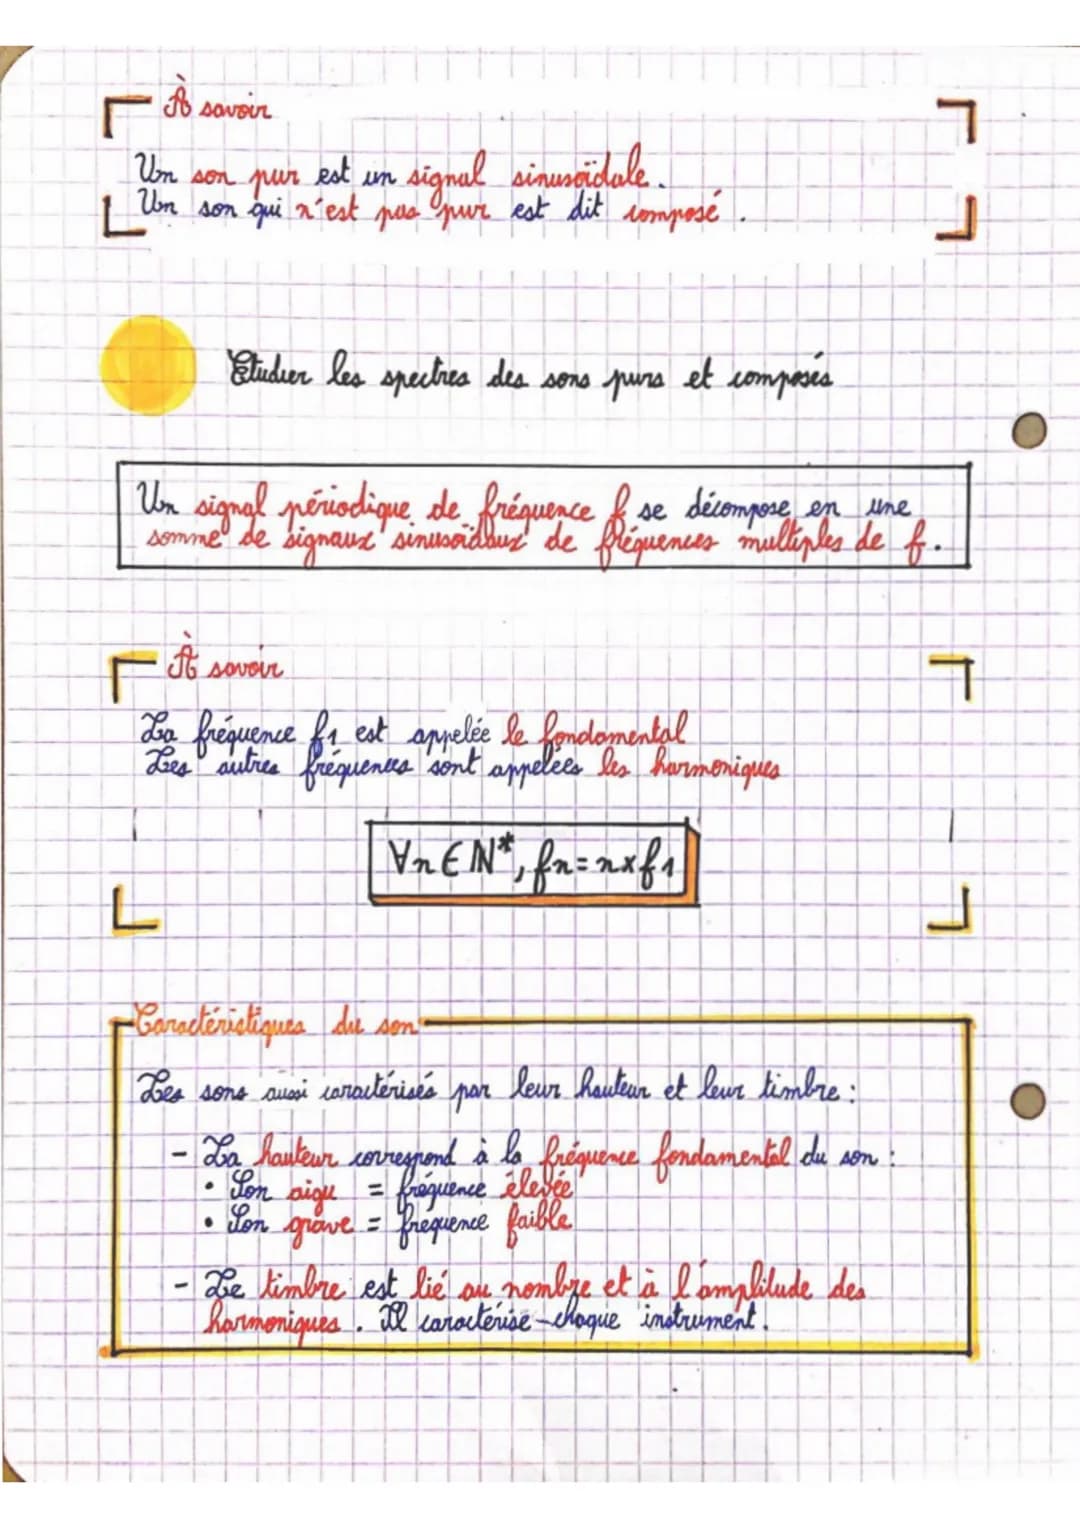 À savoir
Un son pur est un signal sinusoïdale.
Un son qui n'est pas pur est dit composé.
Etudier les spectres des sons purs et composés
Un signal périodique de fréquence f se décompose en une
somme de signaux sinusoïdaux de fréquences multiples de f.
À savoir
La fréquence f1 est appelée le fondamental
Les autres fréquences sont appelées les harmoniques
∀n∈ℕ*, fn=n×f1
Caractéristiques du son
Les sons aussi caractérisés par leur hauteur et leur timbre :
- La hauteur correspond à la fréquence fondamental du son :
• Son aigu = fréquence élevée
• Son grave = fréquence faible
- Le timbre est lié au nombre et à l'amplitude des
harmoniques. Il caractérise chaque instrument.